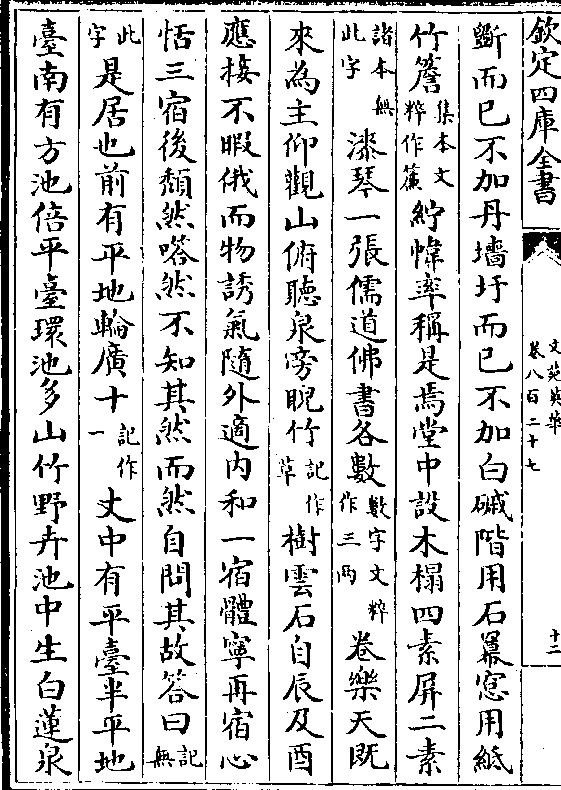 欽定四庫全書
文苑英華
卷八百二十七
十二
斵而已不加丹墻圬而已不加白磩階用石羃窓用紙
竹簷集本文粹作簾紵幃率稱是焉堂中設木榻四素屏二素
諸本無此字漆琴一張儒道佛書各數數字文粹作三兩卷樂天既
來為主仰觀山俯聽泉旁睨竹記作草樹雲石自辰及酉
應接不暇俄而物誘氣隨外適内和一宿體寧再宿心
恬三宿後頽然嗒然不知其然而然自問其故答曰記無
此字是居也前有平地輪廣十記作一丈中有平臺半平地
臺南有方池倍平臺環池多山竹野卉池中生白蓮泉